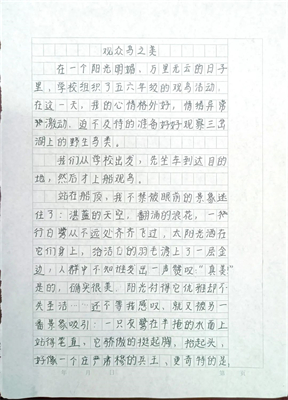 观众鸟之美
在一个阳光明媚、万里无云的日子
里,学校组织了五六年级的观鸟活动。
在这一天,我的心情格外好,情绪异常
激动,迫不及待的准备好好观察三岛
湖上的野生鸟类。
我们从学校出发,先坐车到达目的
地,然后才上船观鸟。
站在船顶,我不禁被眼前的景象迷
住了:湛蓝的天空,翻涌的浪花,一
行白鹭从不远处齐齐飞过,太阳光洒在
它们身上,给洁白的羽毛渡上了一层金
边,人群中不知谁发出一声赞叹:"真美!"
是的,确实很美,阳光衬得它优雅却不
失圣洁……还不等我感叹,就又被另一
番景象吸引:一只灰鹭在平拖的水面上
站得笔直,它骄傲的挺起胸,抬起头,
好像一个在严肃的兵士,更奇特的是,